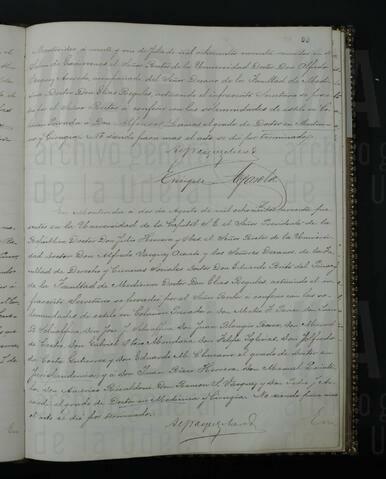 53
Montevideo a veinte y uno de Julio de mil ochocientos noventa reunidos en el
Salon de Exámenes el Señor Rector de la Universidad Doctor Don Alfredo
Vasquez Acevedo, acompañado del Señor Decano de la Facultad de Medi-
cina Doctor Don Elias Regules, actuando el infrascrito Secretario se proce-
por el Señor Rector a conferir con las solemnidades de estilo en Co-
lacion Privada a Don Alfonso Lamas el grado de Doctor en Medicina
y Cirugia. No siendo para mas el acto se dió por terminado.
Enrique Azarola
En Montevideo a dos de Agosto de mil ochocientos noventa pre-
sentes en la Universidad de la Capital S. E. el Señor Presidente de la
República Doctor Don Julio Herrera y Obes, el Señor Rector de la Univer-
sidad doctor Don Alfredo Vasquez Acevedo y los Señores Decanos de la Fa-
cultad de Derecho y Ciencias Sociales Doctor Don Eduardo Brito del Pino
y de la Facultad de Medicina Doctor Don Elias Regules, actuando el in-
frascrito Secretario se procedió por el Señor Rector a conferir con las so-
lemnidades de estilo en Colacion Privada a Don
Don José Don Juan Blengio Don Manuel
Don Gabriel Don Felipe Iglesias, Don Alfredo
de Costa Gutierrez y don Eduardo M. el grado de doctor en
Jurisprudencia; y a don Herrera, don Manuel
don Americo Ricaldoni, Don Ramon Vazquez y don
el grado de Doctor en Medicina y Cirugia. No siendo para mas
el acto se dió por terminado.
En
archivo general
de la Udelar